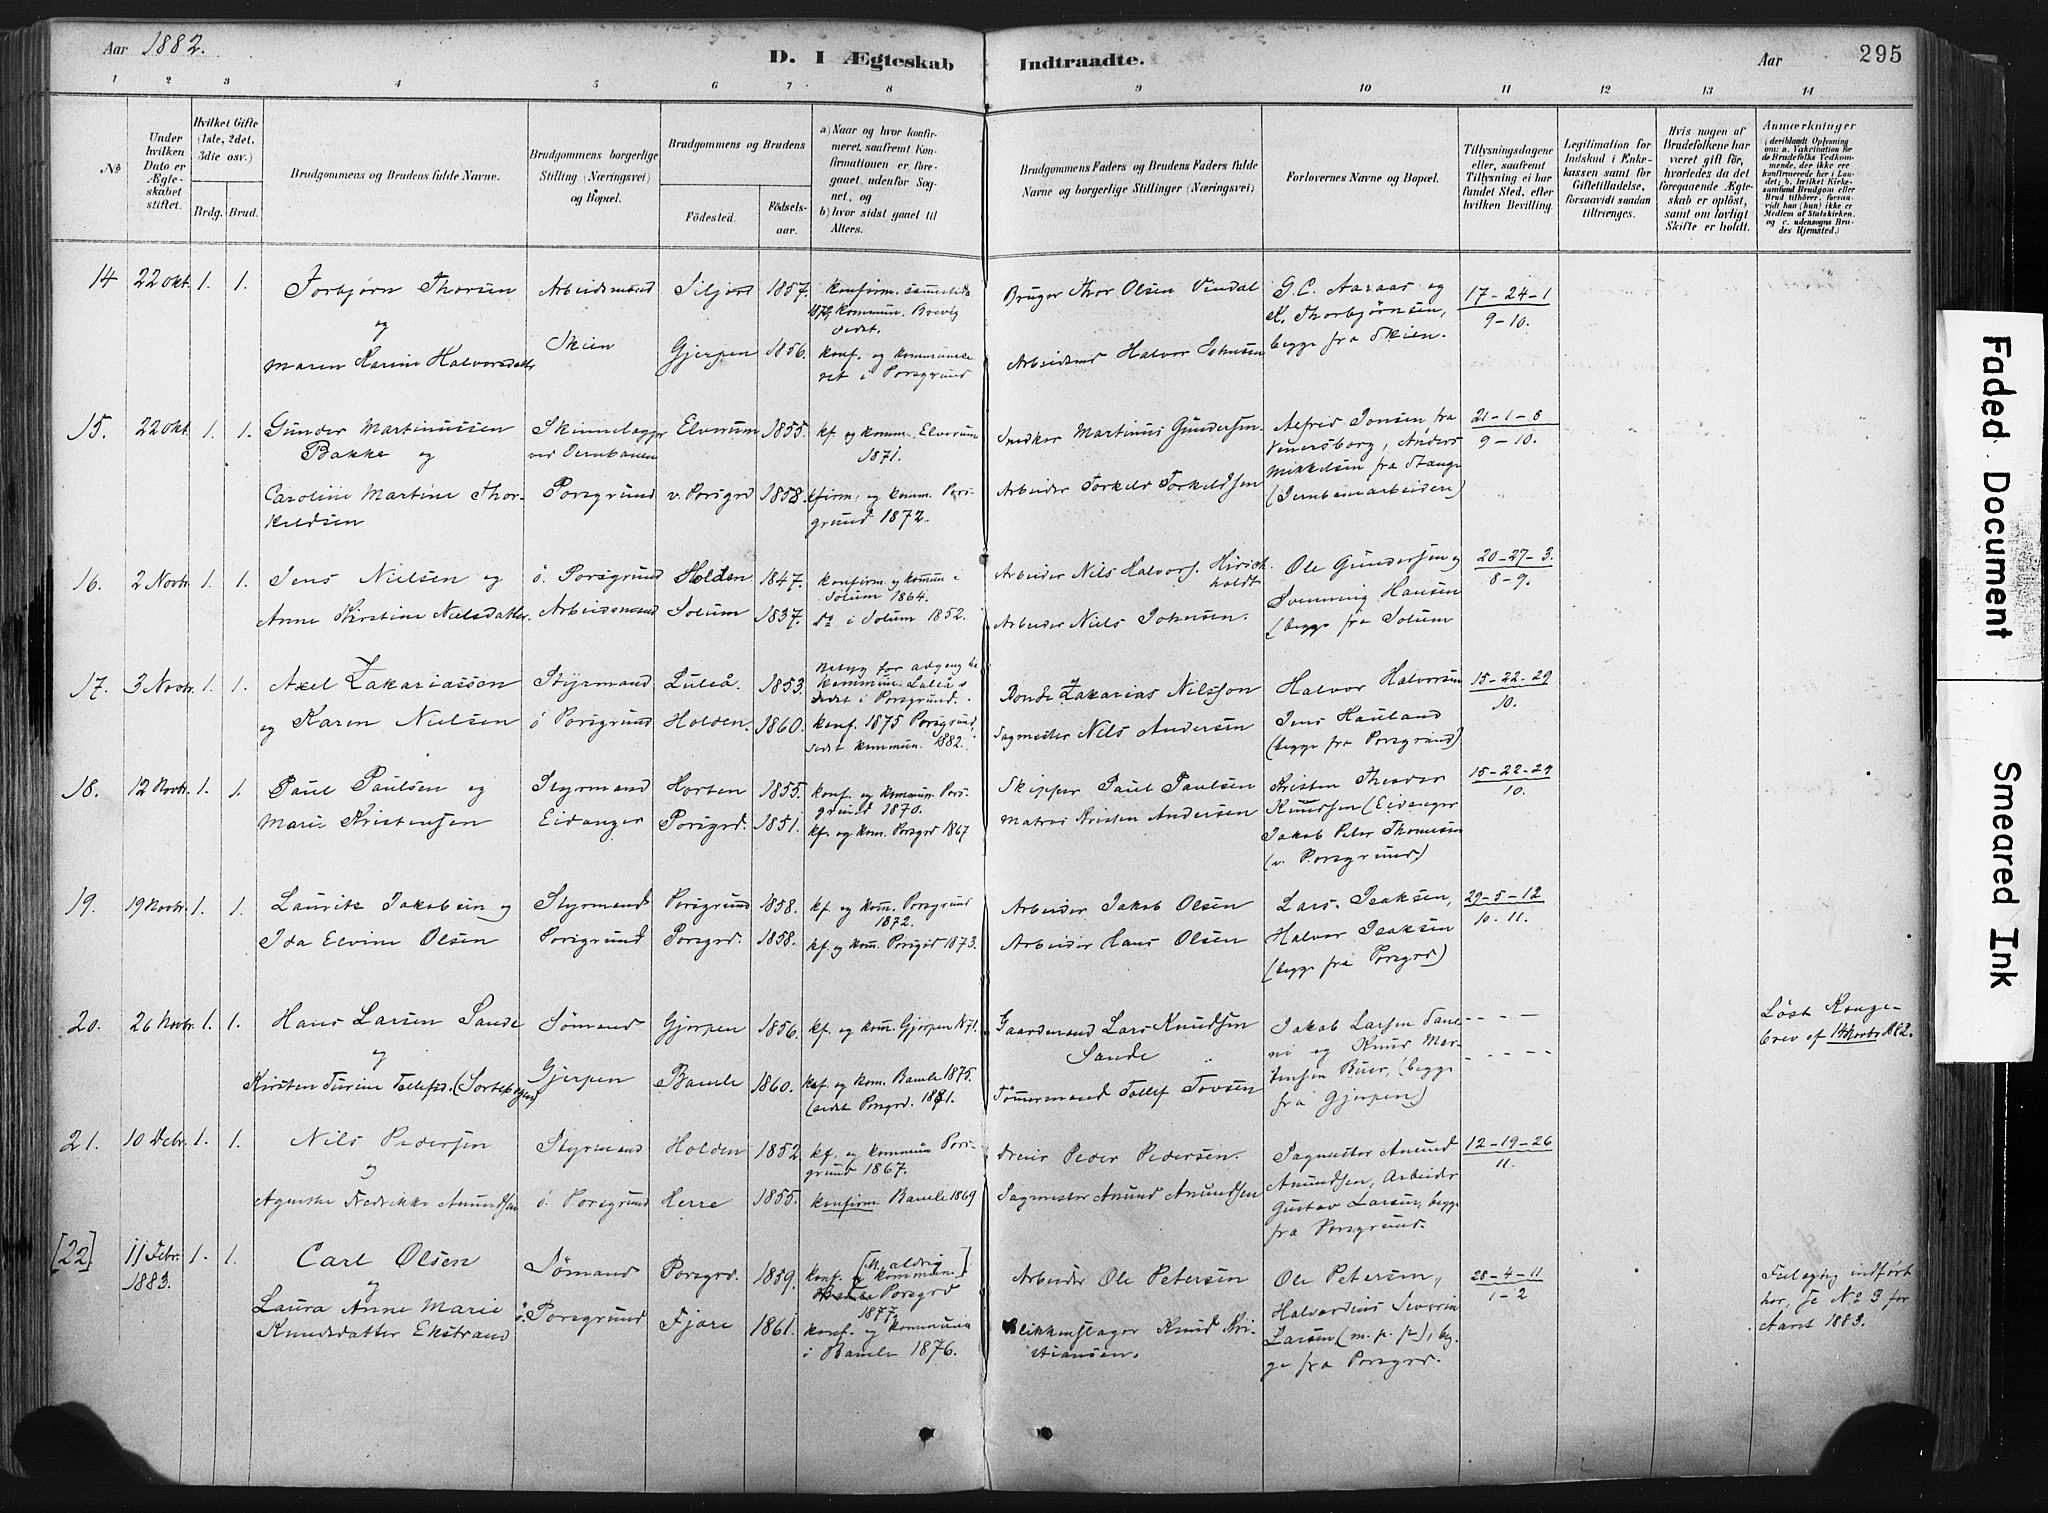 Aar 1882.
D. I Ægteskab Indtraadte.
Aar
295
1 2 3 4 5 6 7 8 9 10 11 12 13 14
No
Under hvilken Dato er Ægteskabet stiftet.
Hvilket Gifte (1ste, 2det, 3die osv.)
Brdg. Brud.
Brudgommens og Brudens fulde Navne.
Brudgommens borgerlige Stilling (Næringsvei) og Bopæl.
Brudgommens og Brudens
Födested.
Födsels-aar.
a) Naar og hvor konfirmeret, saafremt Konfirmationen er foregaaet udenfor Sognet, og
b) hvor sidst gaaet til Alters.
Brudgommens Faders og Brudens Faders fulde Navne og borgerlige Stillinger (Næringsvei)
Forlovernes Navne og Bopæl.
Tillysningsdagene eller, saafremt Tillysning ei har fundet Sted, efter hvilken Bevilling.
Legitimation for Indskud i Enkekassen samt for Giftetilladelse, forsaavidt saadan tiltrænges.
Hvis nogen af Brudefolkene har været gift før, hvorledes da det foregaaende Ægteskab er opløst, samt om lovligt Skifte er holdt.
Anmærkninger
(deriblandt Oplysning om: a. Vakcination for de Brudefolks Vedkommende, der ikke ere konfirmerede her i Landet; b. hvilket Kirkesamfund Brudgom eller Brud tilhörer, forsaavidt han (hun) ikke er Medlem af Statskirken, og c. udensogns Brudes Hjemsted.)
14 22 Okt. 1. 1. Torbjørn Thorsen Arbeidsmand Siljord 1857. konfirm. sammesteds Bruger Thor Olsen Vindal G. C. Aaraas og 17-24-1
og Skien kommun. Brevig sedst. K. Thorbjørnsen, 9-10.
Maren Karine Halvorsdatter Gjerpen 1856. konf. og kommunice- Arbeidsmd Halvor Johnsen begge fra Skien.
ret i Porsgrund
15. 22 Okt. 1. 1. Gunder Martinussen Skinnelægger Elverum 1855. kf. og komm. Elverum Snedker Martinus Gundersen Alfred Jonsen, fra 21-1-8
Bakke og ved Jernbanen 1871. Venersborg, Anders 9-10.
Caroline Martine Thor- Porsgrund v. Porsgrd 1858. kfirm. og komm. Pors- Arbeider Torkeld Torkeldsen Mikkelsen fra Stange
keldsen grund 1872. (Jernbanearbeidere)
16. 2 Novbr. 1. 1. Jens Nielsen og ö. Porsgrund Holden 1847. konfirm. og kommun i Arbeider Nils Halvors. Hirsch- Ole Gundersen og 20-27-3.
Solum 1864. holdt Svenning Hansen 8-9.
Anne Kirstine Nielsdatter. Arbeidsmand Solum 1837. do i Solum 1852. Arbeider Niels Johnsen. (begge fra Solum
17. 3 Novbr. 1. 1. Axel Zakariasson Styrmand Luleå. 1853. Betyg for adgang til Bonde Zakarias Nilsson Halvor Halvorsen 15-22-29
kommun. Luleå, sedst i Porsgrund. 10.
og Karen Nielsen ö Porsgrund Holden 1860. konf. 1875 Porsgrund, Sagmester Nils Andersen Jens Hauland
sedst kommun. 1882. (begge fra Porsgrund)
18. 12 Novbr. 1. 1. Paul Paulsen og Styrmand Horten 1855. konf. og kommun. Pors- Skipper Paul Paulsen Kristen Theodor 15-22-29
grund 1870. Knudsen (Eidanger 10.
Marie Kristensen Eidanger Porsgrd. 1851. kf. og kom. Porsgrd 1867 Matros Kristen Andersen Jakob Peter Thomesen
(v. Porsgrund)
19. 19 Novbr. 1. 1. Lauritz Jakobsen og Styrmand Porsgrund 1858. kf. og komm. Porsgrund Arbeider Jakob Olsen Lars Isaksen, 29-5-12
1872. Halvor Isaksen 10. 11.
Ida Elvine Olsen Porsgrund Porsgrd. 1858. kf. og kom. Porsgrd 1873. Arbeider Hans Olsen (begge fra Porsgrd)
20. 26 Novbr. 1. 1. Hans Larsen Sande Sømand Gjerpen 1856. kf. og kom. Gjerpen 1871. Gaardmand Lars Knudsen Jakob Larsen - - - Løst Konge-
og Sande og Knud Mar- brev af 14 Novbr 1882.
Kirsten Turine Tollefsd. Gjerpen Bamle 1860. kof. og kom. Bamle 1875. Tömmermand Tollef Tovsen tinsen Buer, (begge - - -
(sedst Porsgrd. 1881. fra Gjerpen)
21. 10 Debr. 1. 1. Nils Pedersen Styrmand Holden 1852 kf. og kommun Pors- Dreier Peder Pedersen. Sagmester Amund 12-19-26
og grund 1867. Amundsen, Arbeider 11.
Agnethe Fredrikke Amundsen ö. Porsgrund Herre 1855. konfirm Bamle 1869 Sagmester Amund Amundsen Gustav Larsen, begge
fra Porsgrund.
[22] 11 Febr. 1. 1. Carl Olsen Sømand Porsgrd. 1859. konf. og kommun. [aldrig] Arbeider Ole Petersen Ole Petersen, 28-4-11 Feilagtig indført
1883. og Porsgrd 1877. Halvardius Severin 1-2 her, se No 3 for
Laura Anne Marie ö. Porsgrund Fjære 1861. konf. og kommun Blikkenslager Knud Kri- Larsen (m. p. p), beg- Aaret 1883.
Knudsdatter Ekstrand i Bamle 1876. stiansen. ge fra Porsgrd.
Faded Document
Smeared Ink